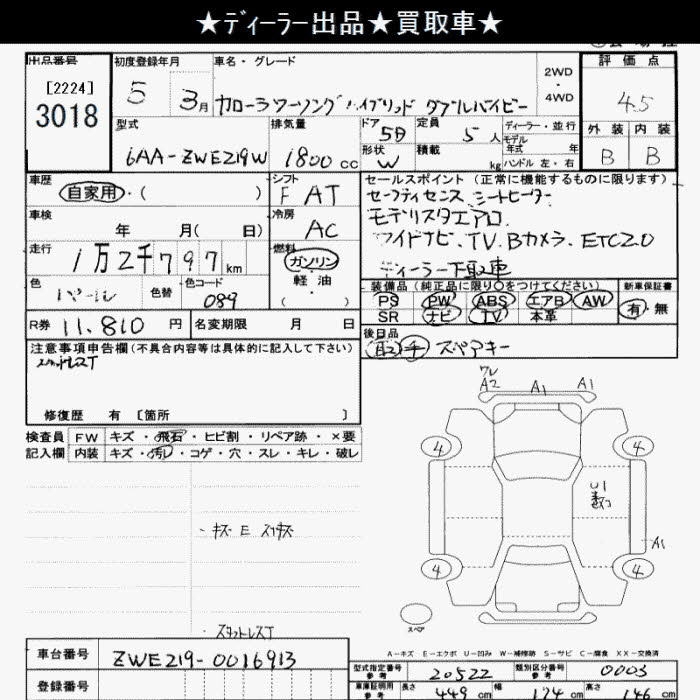 ★ディーラー出品★買取車★
出品番号
[2224]
3018
初度登録年月
5 3月
車名・グレード
カローラツーリング ハイブリッド ダブルバイビー
2WD
・
4WD
評価点
4.5
外装 内装
B B
型式
6AA-ZWE219W
排気量
1800 cc
ドア 5D
形状 W
定員 5 人
積載 kg
ディーラー・並行
モデル年式 年
ハンドル 左・右
車歴
自家用・( )
シフト
F AT
車検
年 月( 日)
冷房
AC
走行
1万2千797 km
燃料
ガソリン
軽油
( )
色
パール
色替
色コード
089
R券 11,810 円
名変期限 月 日
セールスポイント (正常に機能するものに限ります)
セーフティセンス シートヒーター
モデリスタエアロ
ワイドナビ、TV、Bカメラ、ETC2.0
ディーラー下取車
装備品 (純正品に限り○をつけてください)
PS PW ABS エアB AW
SR ナビ TV 本革
新車保証書
有・無
後日品
取 スペアキー
注意事項申告欄 (不具合内容等は具体的に記入して下さい)
修復歴 有 [箇所 ]
検査員 FW キズ・飛石・ヒビ割・リペア跡・×要
記入欄 内装 キズ・汚レ・コゲ・穴・スレ・キレ・破レ
・キズ E スリキズ
・スタットレスT
ワレ
A2 A1 A1
4 4
U1
A1
4 4
スペア
A-キズ E-エクボ U-凹み W-補修跡 S-サビ C-腐食 XX-交換済
車台番号 ZWE219-0016913
登録番号
型式指定番号 参考 20522
類別区分番号 参考 0003
車庫証明用 参考 長さ 449 cm 幅 174 cm 高さ 146 cm